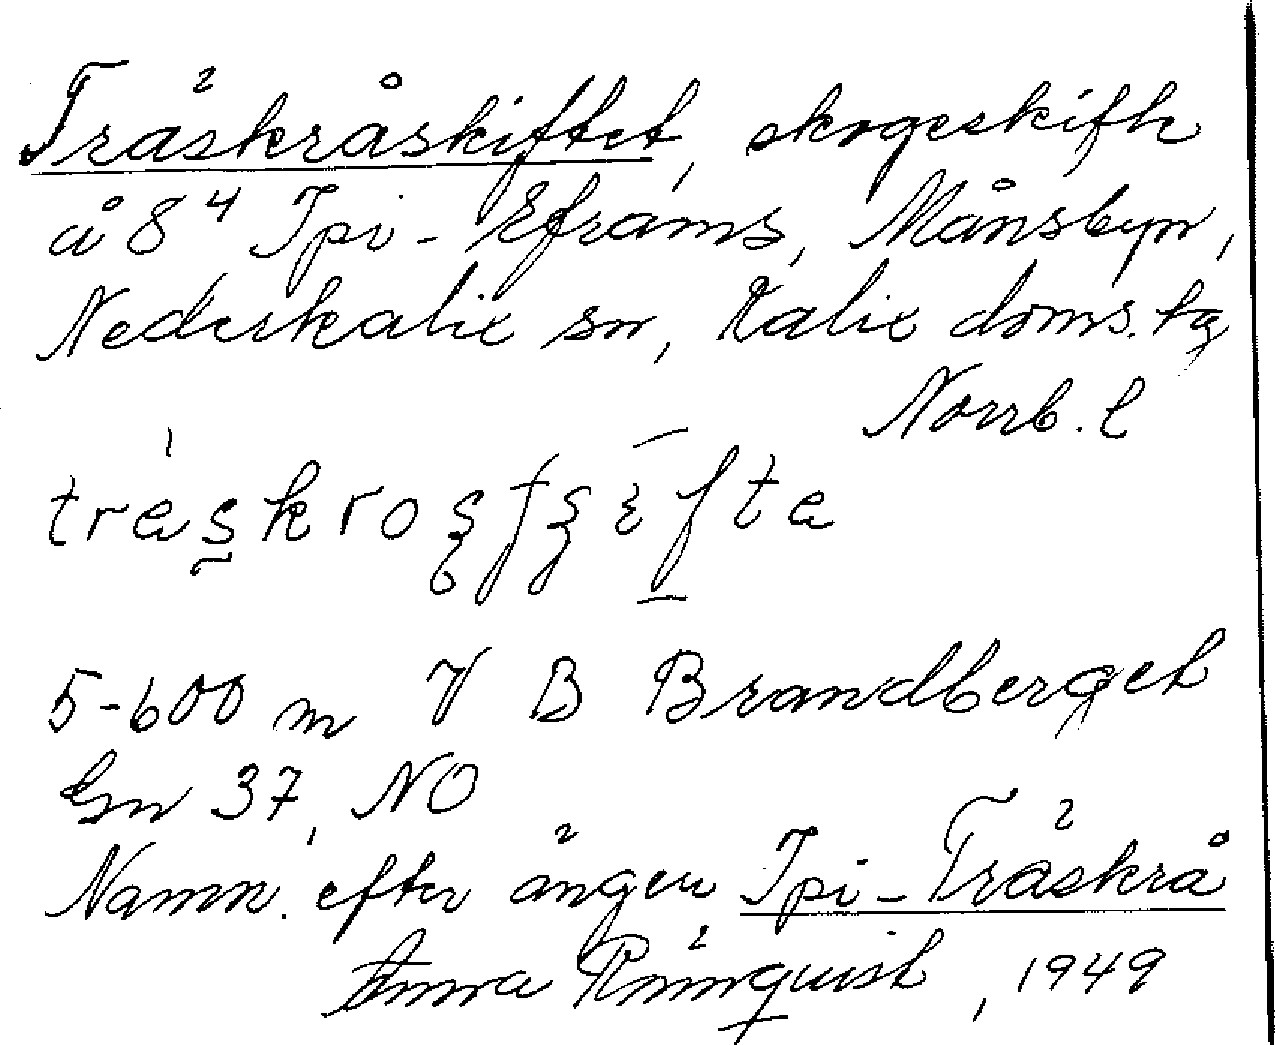 Träskråskiftet, skogsskifte
å 8⁴ Ipi-Efraims, Månsbyn,
Nederkalix sn, Kalix doms. tg
Norrb. l
5-600 m V B Brandberget
Gn 37, NO
Namn. efter ängen Ipi-Träskrå
Anna Rönnquist, 1949